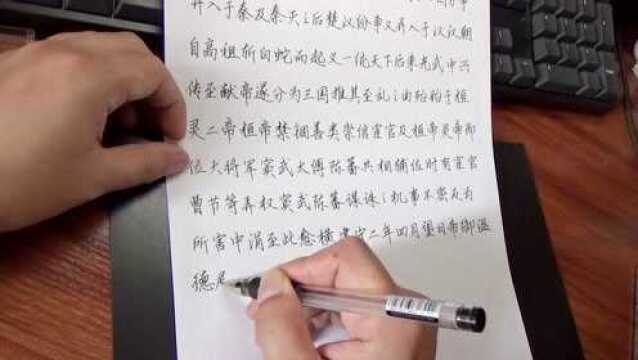 并入于秦及秦灭之后楚汉纷争又并入于汉汉朝
自高祖斩白蛇而起义一统天下后来光武中兴
传至献帝遂分为三国推其至乱之由殆始于桓
灵二帝桓帝禁锢善类崇信宦官及桓帝灵帝即
位大将军窦武太傅陈蕃共相辅佐时有宦官
曹节等弄权窦武陈蕃谋诛之机事不密反为
所害中涓至此愈横建宁二年四月望日帝御温
德